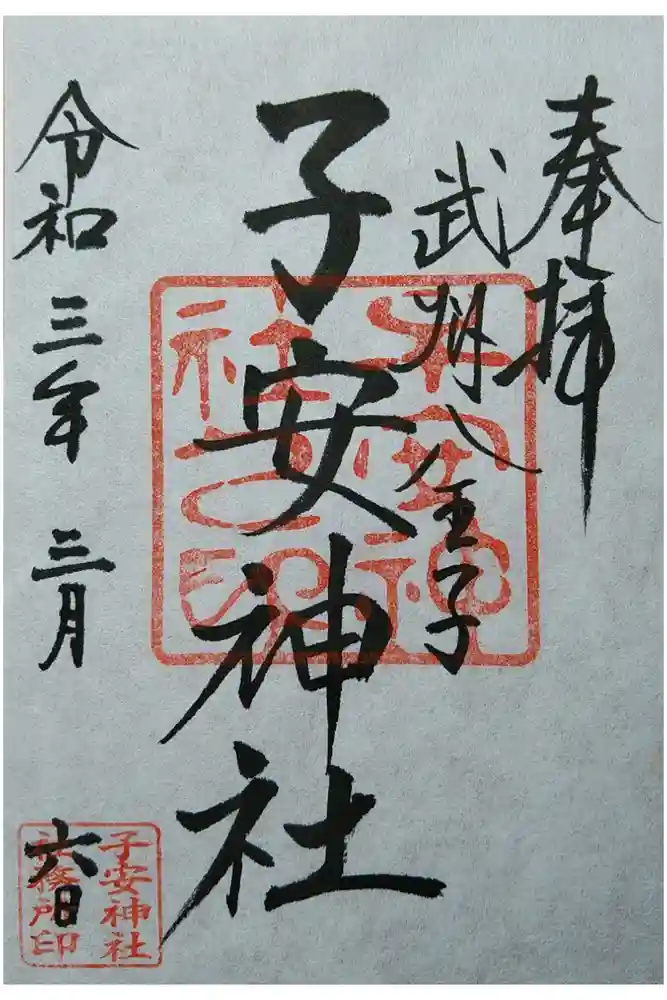 奉拝
武州八王子
子安神社
令和三年三月六日
子安神社
社務所印